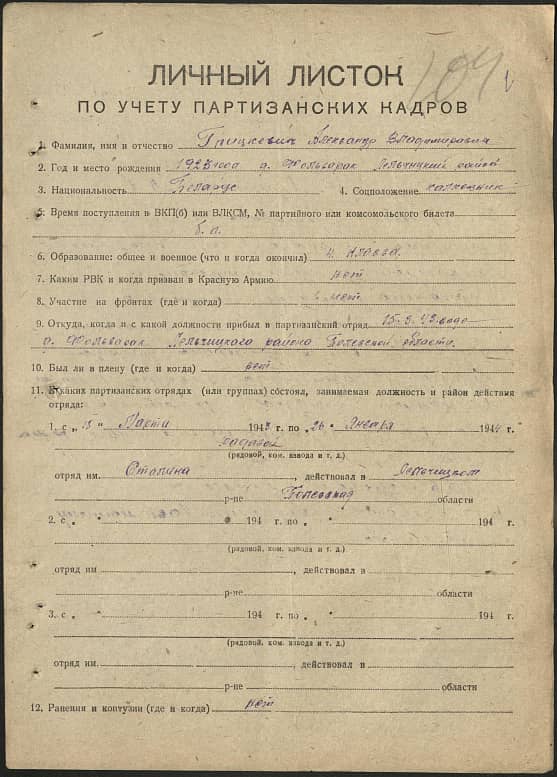 104
ЛИЧНЫЙ ЛИСТОК
ПО УЧЕТУ ПАРТИЗАНСКИХ КАДРОВ
1. Фамилия, имя и отчество Грицкевич Александр Владимирович
2. Год и место рождения 1928 года д. Фольварак Лельчицкий район
3. Национальность Беларус 4. Соцположение колхозник
5. Время поступления в ВКП(б) или ВЛКСМ, № партийного или комсомольского билета
б. п.
6. Образование: общее и военное (что и когда окончил) 4 класса.
7. Каким РВК и когда призван в Красную Армию нет
8. Участие на фронтах (где и когда) нет
9. Откуда, когда и с какой должности прибыл в партизанский отряд 15.3.43 года
д. Фольварак Лельчицкого района Полесской области.
10. Был ли в плену (где и когда) нет
11. В каких партизанских отрядах (или группах) состоял, занимаемая должность и район действия
отряда:
1. с „15" Марта 1943 г. по „26" Января 1944 г.
радавой
(рядовой, ком. взвода и т. д.)
отряд им. Сталина, действовал в Лельчицком
р-не Полесской области
2. с „ " 194 г. по „ " 194 г.
(рядовой, ком. взвода и т. д.)
отряд им , действовал в
р-не области
3. с „ " 194 г. по „ " 194 г.
(рядовой, ком. взвода и т. д.)
отряд им. , действовал в
р-не области
12. Ранения и контузии (где и когда) нет